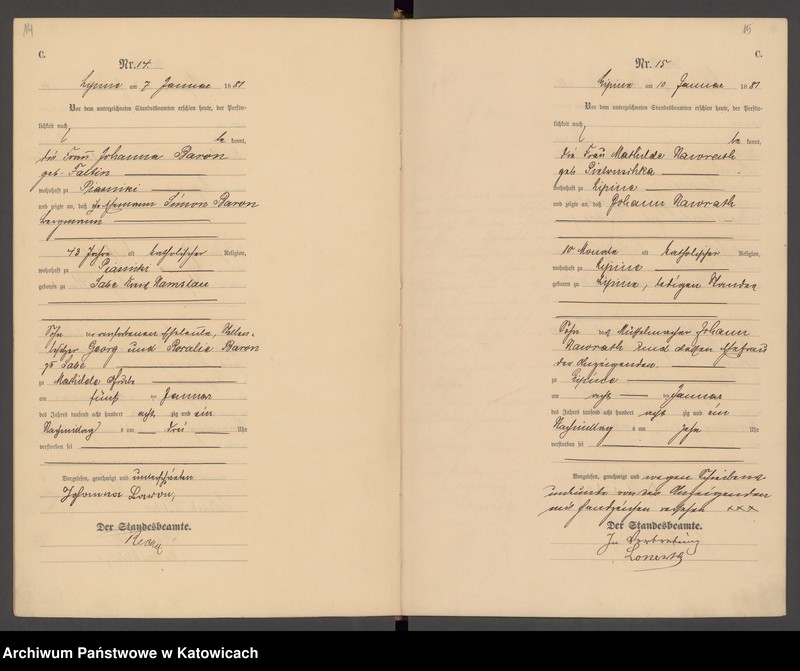 14
C.
Nr. 14.
Lipine am 7 Januar 1881
Vor dem unterzeichneten Standesbeamten erschien heute, der Persön-
lichkeit nach
be kannt,
die Frau Johanna Baron
geb. Faltin
wohnhaft zu Piasniki
und zeigte an, daß Ehemann Simon Baron
Bergmann
43 Jahre alt katholischer Religion,
wohnhaft zu Piasniki
geboren zu Kreis Namslau
Sohn der verstorbenen Eheleute, Stellen-
besitzer Georg und Rosalie Baron
zu
zu Mathilde Grube
am fünf ten Januar
des Jahres tausend acht hundert acht zig und ein
Nachmittag s um drei Uhr
verstorben sei
Vorgelesen, genehmigt und unterschrieben
Johanna Baron,
Der Standesbeamte.
15
C.
Nr. 15
Lipine am 10 Januar 1881
Vor dem unterzeichneten Standesbeamten erschien heute, der Persön-
lichkeit nach
be kannt,
die Frau Mathilde Nawrath
geb
wohnhaft zu Lipine
und zeigte an, daß Johann Nawrath
10 Monate alt katholischer Religion,
wohnhaft zu Lipine
geboren zu Lipine, ledigen Standes
Sohn des Johann
Nawrath und dessen Ehefrau
der Anzeigenden.
zu Lipine
am acht ten Januar
des Jahres tausend acht hundert acht zig und ein
Nachmittag s um zehn Uhr
verstorben sei
Vorgelesen, genehmigt und wegen Schreibens
unkunde von der Anzeigenden
mit Handzeichen versehen xxx
Der Standesbeamte.
In Vertretung
Archiwum Państwowe w Katowicach